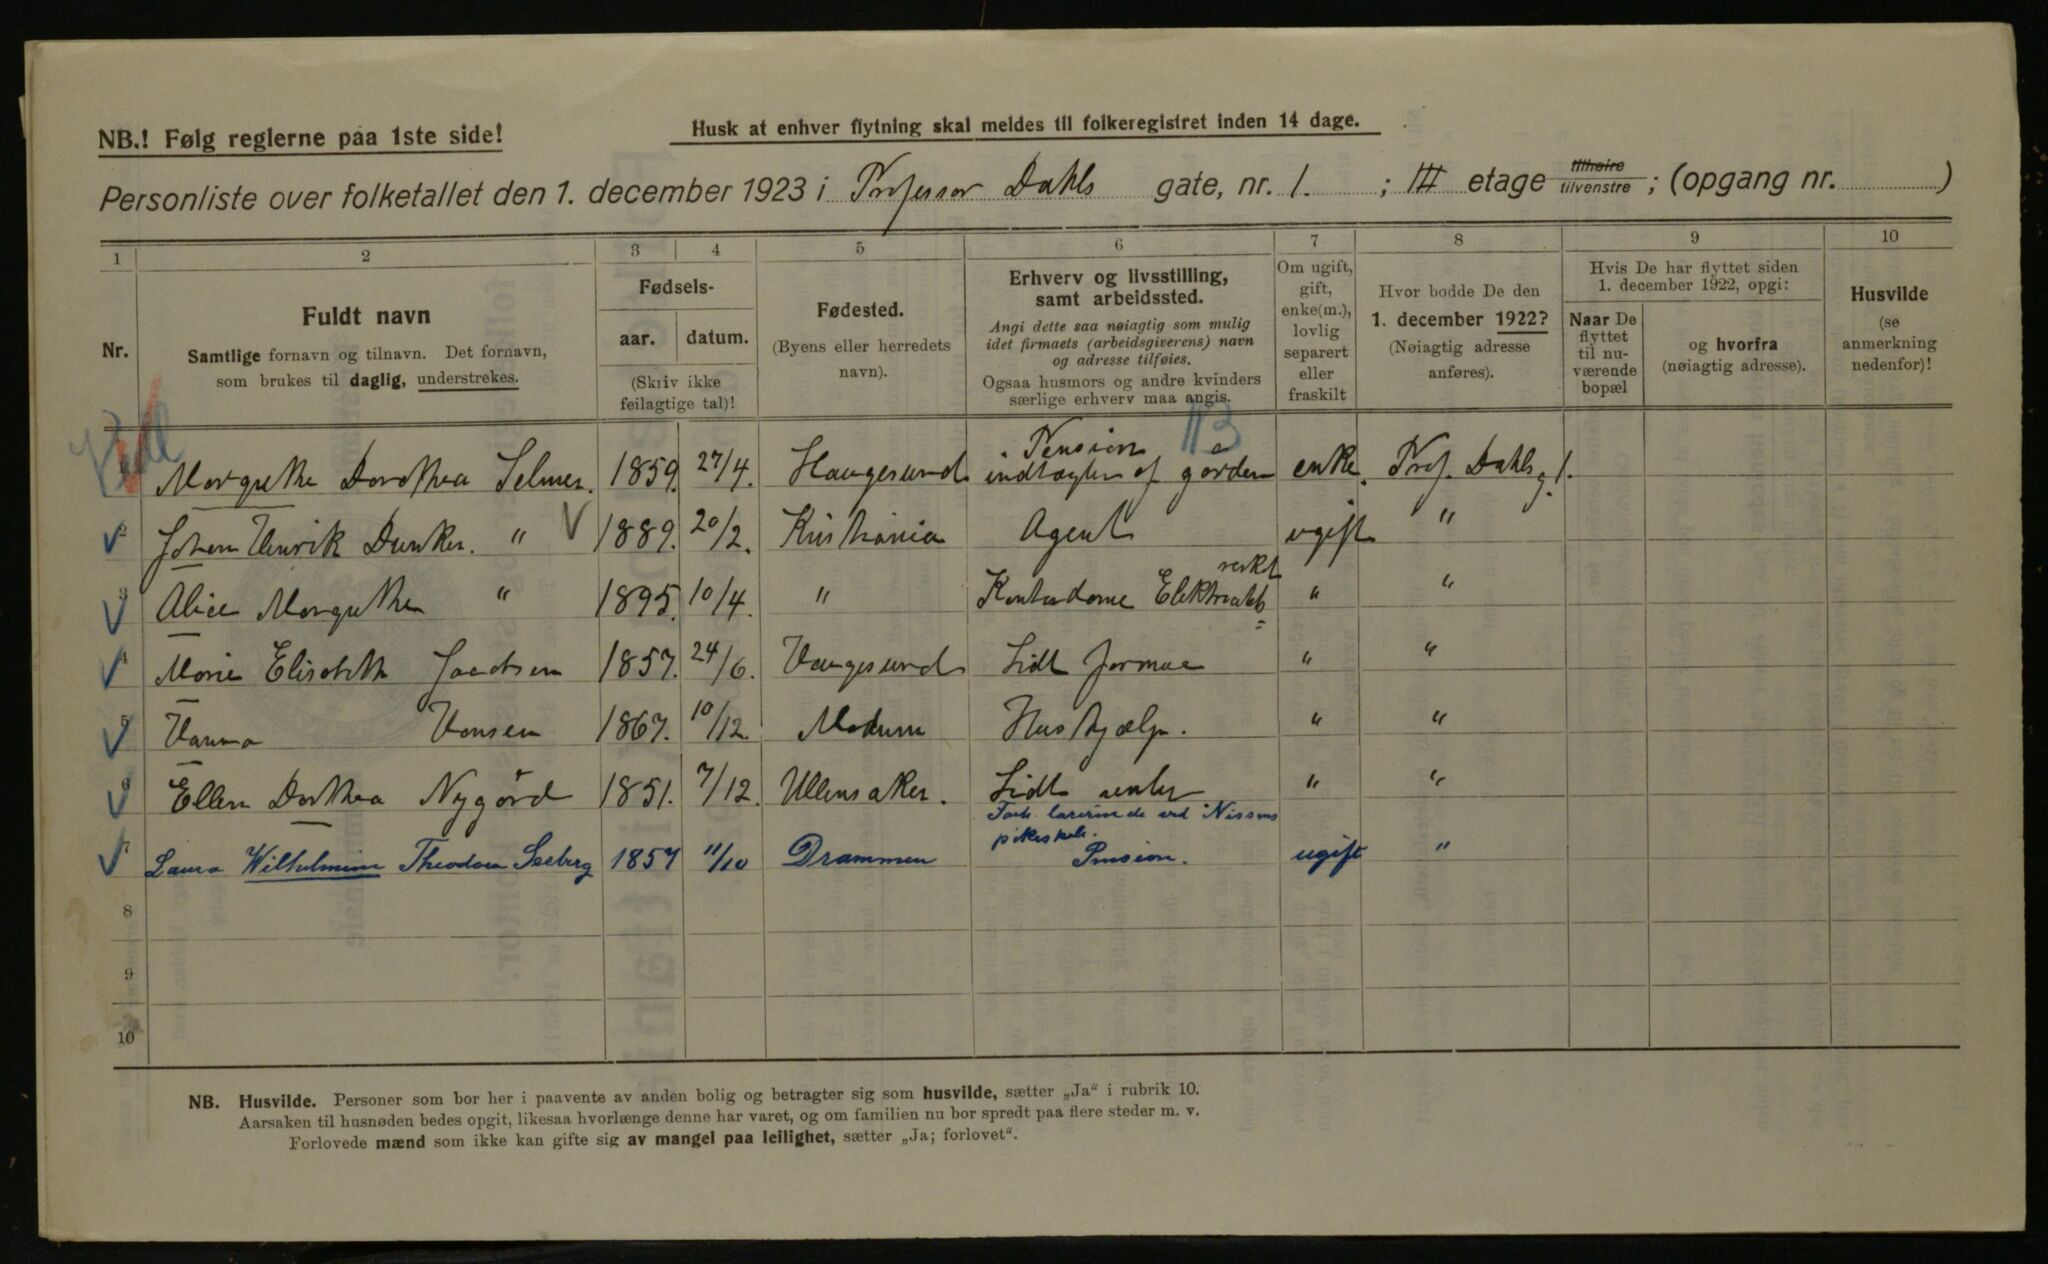 NB.! Følg reglerne paa 1ste side!
Husk at enhver flytning skal meldes til folkeregistret inden 14 dage.
Personliste over folketallet den 1. december 1923 i Professor Dahls gate, nr. 1. ; III etage tilhøire tilvenstre ; (opgang nr. )
1 2 3 4 5 6 7 8 9 10
Nr.
Fuldt navn
Samtlige fornavn og tilnavn. Det fornavn,
som brukes til daglig, understrekes.
Fødsels-
aar. datum.
(Skriv ikke
feilagtige tal)!
Fødested.
(Byens eller herredets
navn).
Erhverv og livsstilling,
samt arbeidssted.
Angi dette saa nøiagtig som mulig
idet firmaets (arbeidsgiverens) navn
og adresse tilføies.
Ogsaa husmors og andre kvinders
særlige erhverv maa angis.
Om ugift,
gift,
enke(m.),
lovlig
separert
eller
fraskilt
Hvor bodde De den
1. december 1922?
(Nøiagtig adresse
anføres).
Hvis De har flyttet siden
1. december 1922, opgi:
Naar De
flyttet
til nu-
værende
bopæl
og hvorfra
(nøiagtig adresse).
Husvilde
(se
anmerkning
nedenfor)!
Pension
1 Margrethe Dorothea Selmer. 1859. 27/4. Haugesund indtægter af gården enke. Prof. Dahls g. 1.
2 Johan Henrik Dunker. " 1889. 20/2. Kristiania Agent ugift "
3 Alice Margrethe " 1895. 10/4. " Kontordame " "
4 Marie Elisabeth Jacobsen 1857. 24/6. Haugesund Lidt formue " "
5 Hanna Hansen 1867. 10/12. Modum Hushjælp. " "
6 Ellen Dorthea Nygård 1851. 7/12. Ullensaker. Lidt renter " "
lærerinde ved Nissens
pikeskole.
7 Laura Wilhelmine Theodora Seeberg 1857 11/10 Drammen Pension. ugift "
8
9
10
NB. Husvilde. Personer som bor her i paavente av anden bolig og betragter sig som husvilde, sætter „Ja“ i rubrik 10.
Aarsaken til husnøden bedes opgit, likesaa hvorlænge denne har varet, og om familien nu bor spredt paa flere steder m. v.
Forlovede mænd som ikke kan gifte sig av mangel paa leilighet, sætter „Ja; forlovet“.